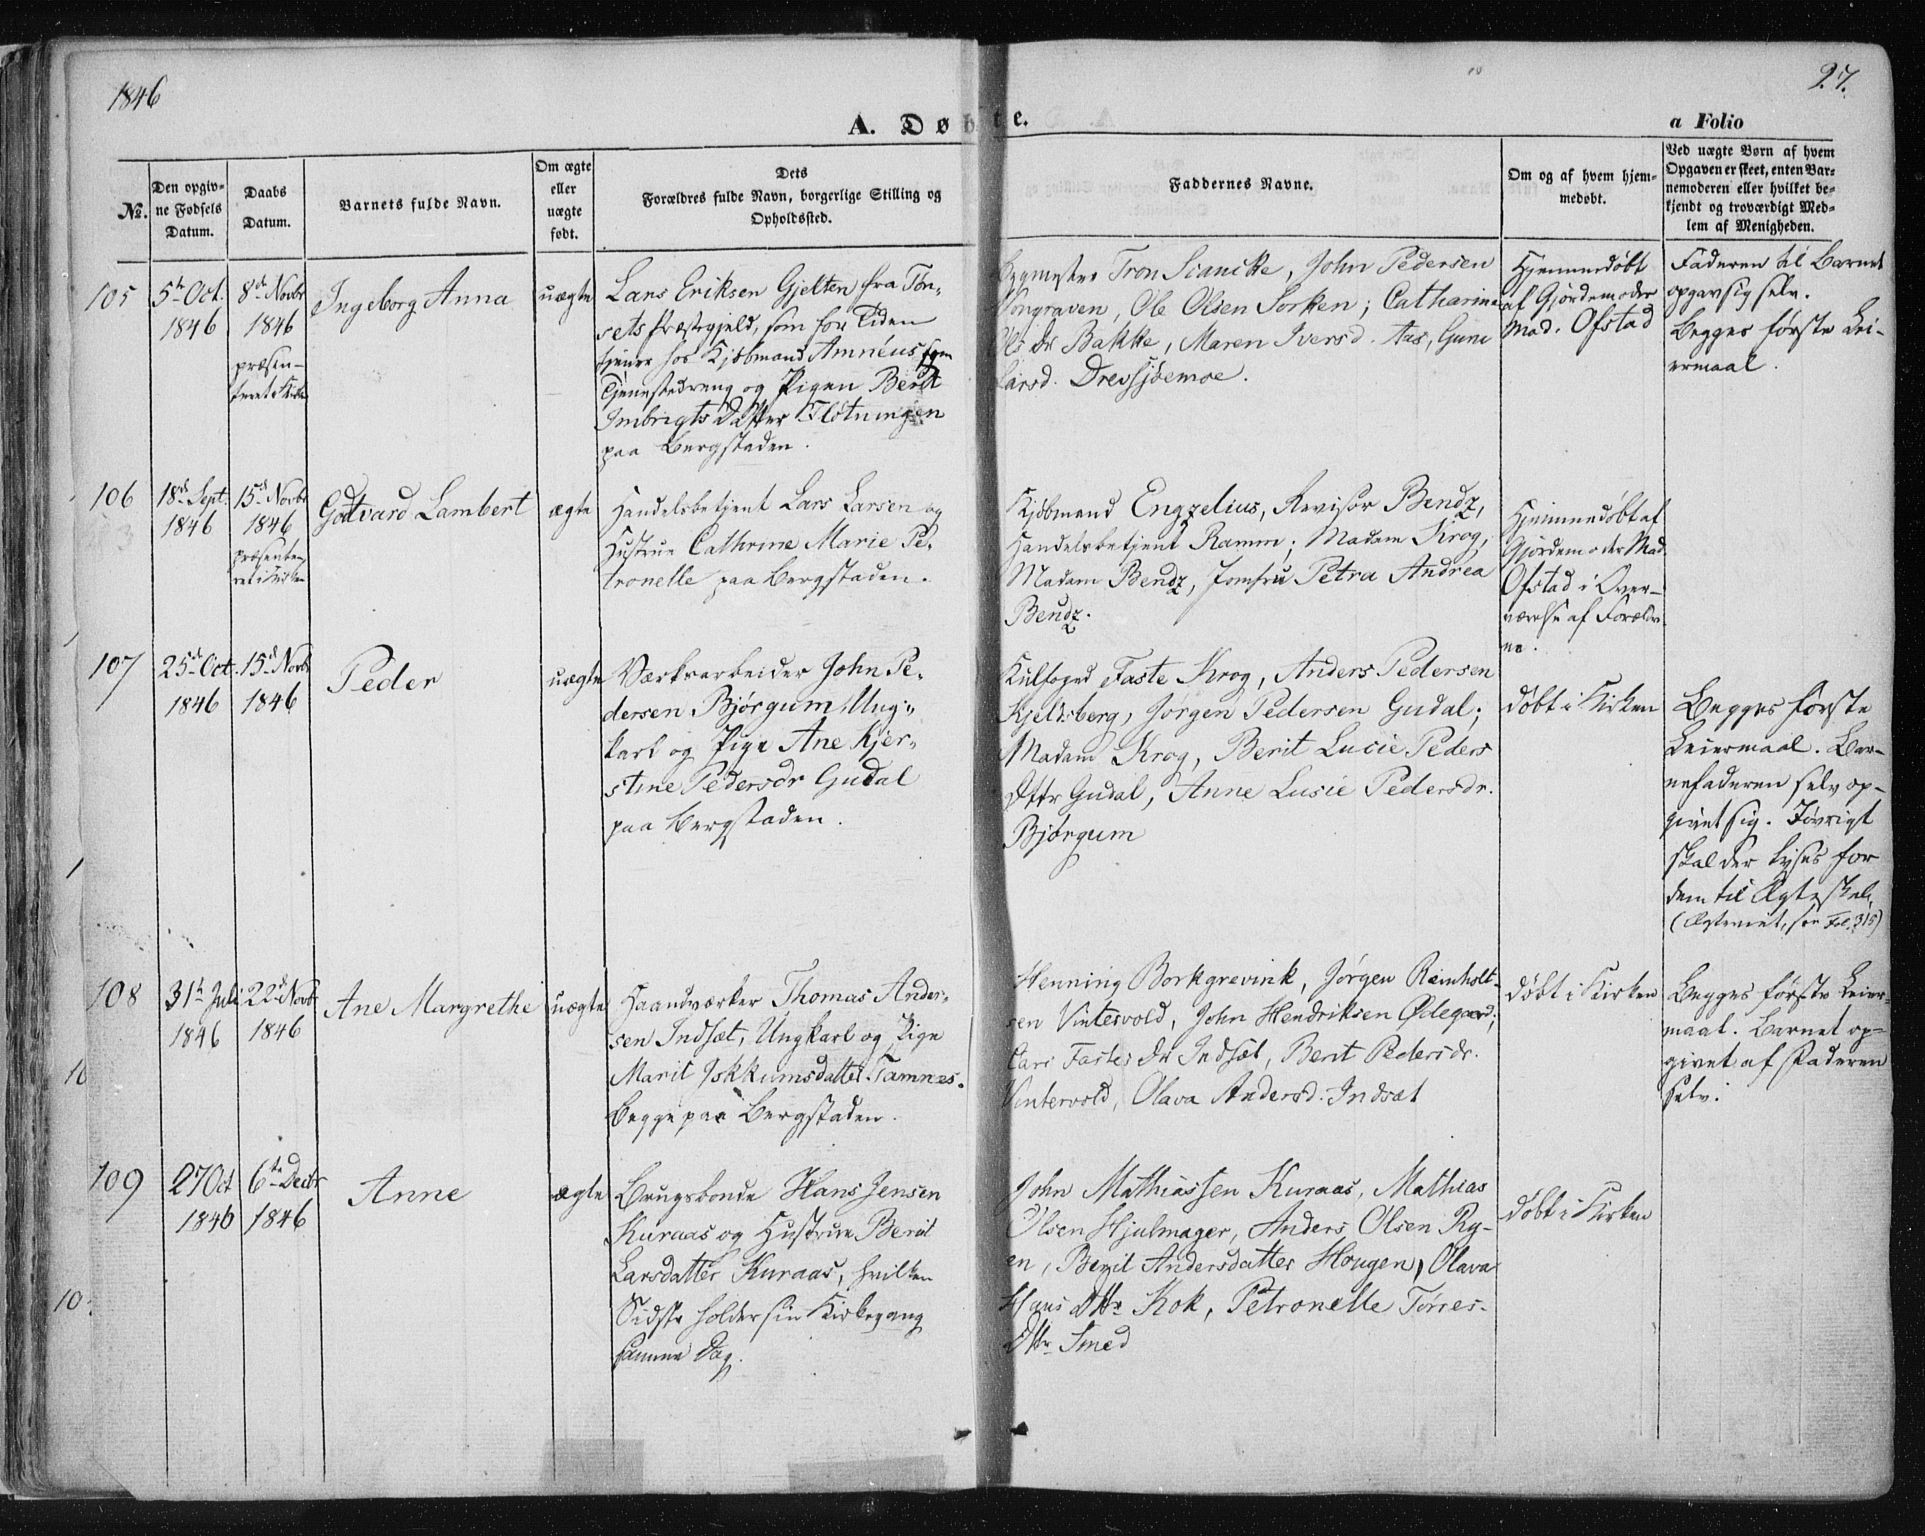 1846
27.
A. Døbte.
a Folio
No.
Den opgiv-
ne Fødsels
Datum.
Daabs
Datum.
Barnets fulde Navn.
Om ægte
eller
uægte
født.
Dets
Forældres fulde Navn, borgerlige Stilling og
Opholdssted.
Faddernes Navne.
Om og af hvem hjem-
medøbt.
Ved uægte Børn af hvem
Opgaven er skeet, enten Bar-
nemoderen eller hvilket be-
kjendt og troværdigt Med-
lem af Menigheden.
105
5te Oct.
1846
8de Novbr
1846
præsen-
teret i Kirken
Ingeborg Anna
uægte
Lars Eriksen Gjelten fra Tøn-
sets Præstegjeld, som for Tiden
tjener hos Kjøbmand Amnéus som
Tjenestedreng og Pigen Berit
Imbrigts Datter Fløtningen
paa Bergstaden.
Bygmester Tron Sciancke, John Pedersen
Ole Olsen Sorken; Catharina
Ols Dr Bakke, Maren Iversd. Aas, Guni
Larsd. Drevsjøemoe.
Hjemmedøbt
af Gjordemoder
Mad. Ofstad
Faderen til Barnet
opgav sig selv.
Begges første Lei-
ermaal.
106
18de Sept.
1846
15de Novbr
1846
præsente-
ret i Kirken
Godtvard Lambert
ægte
Handelsbetjent Lars Larsen og
Hustrue Cathrine Marie Pe-
tronelle paa Bergstaden.
Kjøbmand Engzelius, Revisor Bendz,
Handelsbetjent Ramm; Madam Krog,
Madam Bendz, Jomfru Petra Andrea
Bendz.
Hjemmedøbt af
Gjordemoder Mad.
Ofstad i Over-
værelse af Forældre-
ne.
107
25de Oct.
1846
15de Novbr
1846
Peder
uægte
Værksarbeider John Pe-
dersen Bjørgum, Ung-
karl og Pige Ane Kjer-
stine Pedersdr Gudal
paa Bergstaden.
Kulfoged Faste Krog, Anders Pedersen
Kjeldsberg, Jørgen Pedersen Gudal;
Madam Krog, Berit Lucie Peders
Dttr Gudal, Anne Lusie Pedersdr.
Bjørgum
døbt i Kirken
Begges første
Leiermaal. Bar-
nefaderen selv op-
givet sig. Iøvrigt
skal der lyses for
dem til Ægteskab.
(Ægteviet, see Fol. 315)
108
31te Juli
1846
22de Novbr
1846
Ane Margrethe
uægte
Haandværker Thomas Ander-
sen Indset, Ungkarl og Pige
Marit Jokkumsdatter Tamnes.
begge paa Bergstaden.
Henning Borkgrevink, Jørgen Reinholt-
sen Vintervold, John Hendriksen Ødegaard;
Fastes Dr Indset, Berit Pedersdr.
Vintervold, Olava Andersd. Indset
døbt i Kirken
Begges første Leier-
maal. Barnet op-
givet af Faderen
selv.
109
27 Oct
1846
6te Decbr
1846
Anne
ægte
Brugsbonde Hans Jensen
Kuraas og Hustrue Berit
Larsdatter Kuraas, hvilken
Sidste holder sin Kirkegang
samme Dag.
John Mathiassen Kuraas, Mathias
Olsen Hjulmager, Anders Olsen Ry-
en, Berit Andersdatter Hougen, Olava
Hans Dttr Kok, Petronelle Tørres-
Dttr Smed
døbt i Kirken